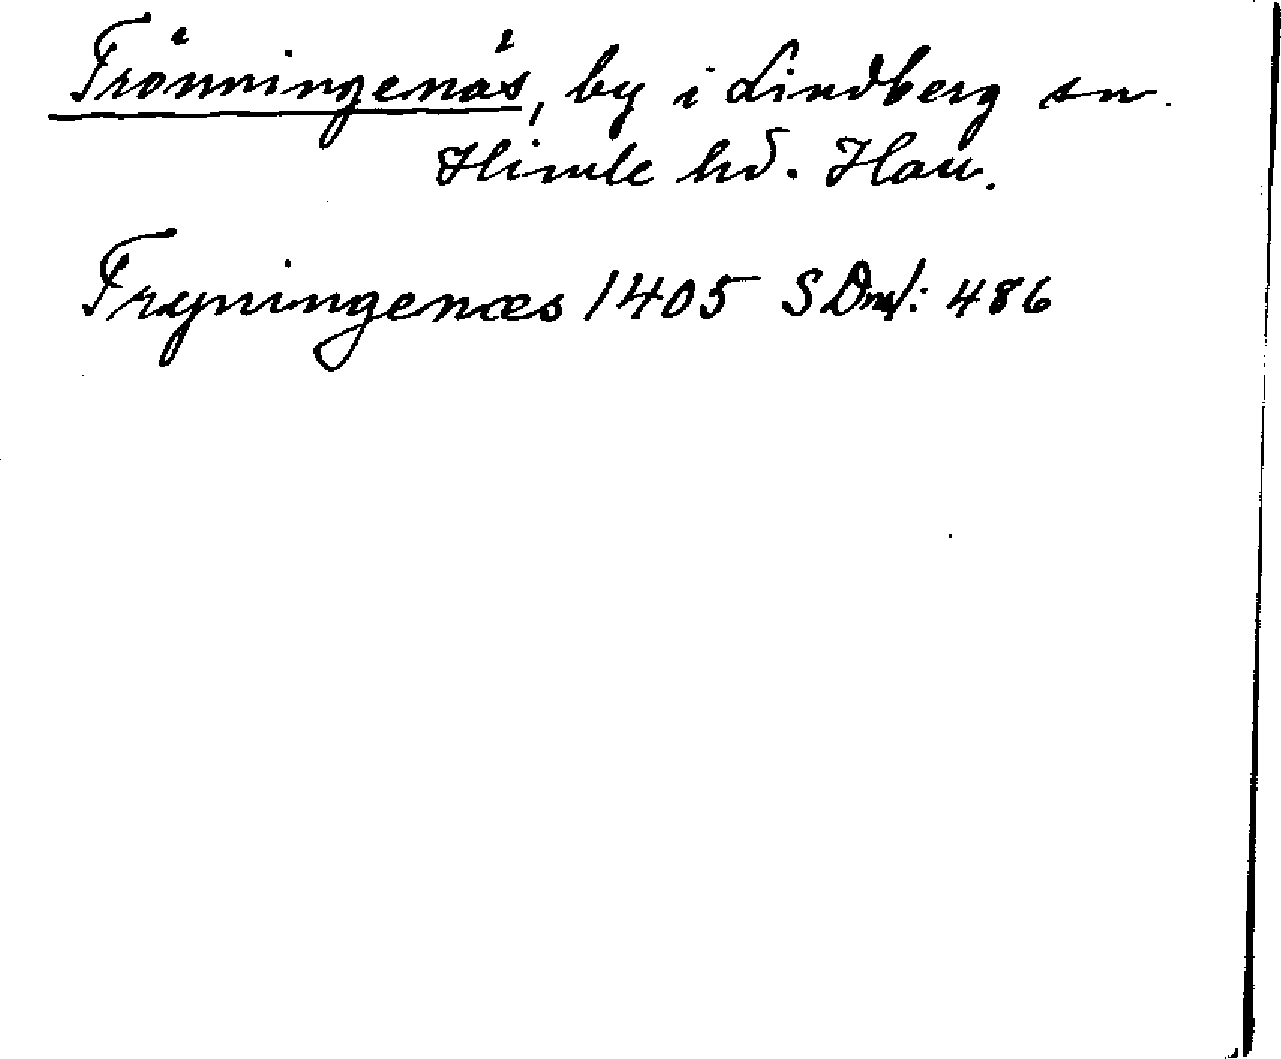 Trönningenäs, by i Lindberg sn.
Himle hd. Hall.
Tryningenæs 1405 SDnf: 486